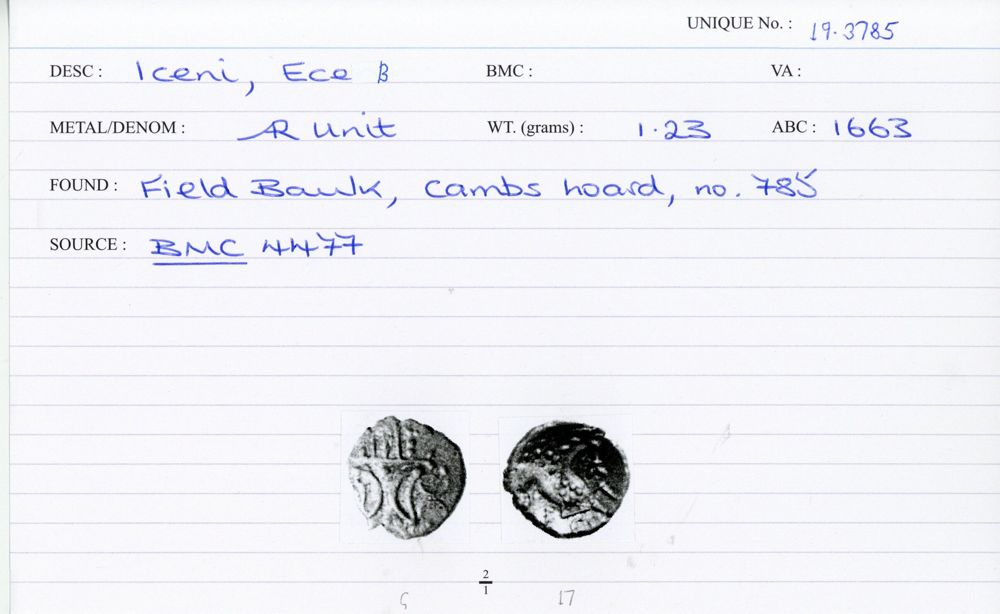 UNIQUE No. : 19.3785
DESC : Iceni, Ece B BMC : VA :
METAL/DENOM : AR Unit WT. (grams) : 1.23 ABC : 1663
FOUND : Field Bawk, Cambs hoard, no. 785
SOURCE : BMC 4477
2
1
17